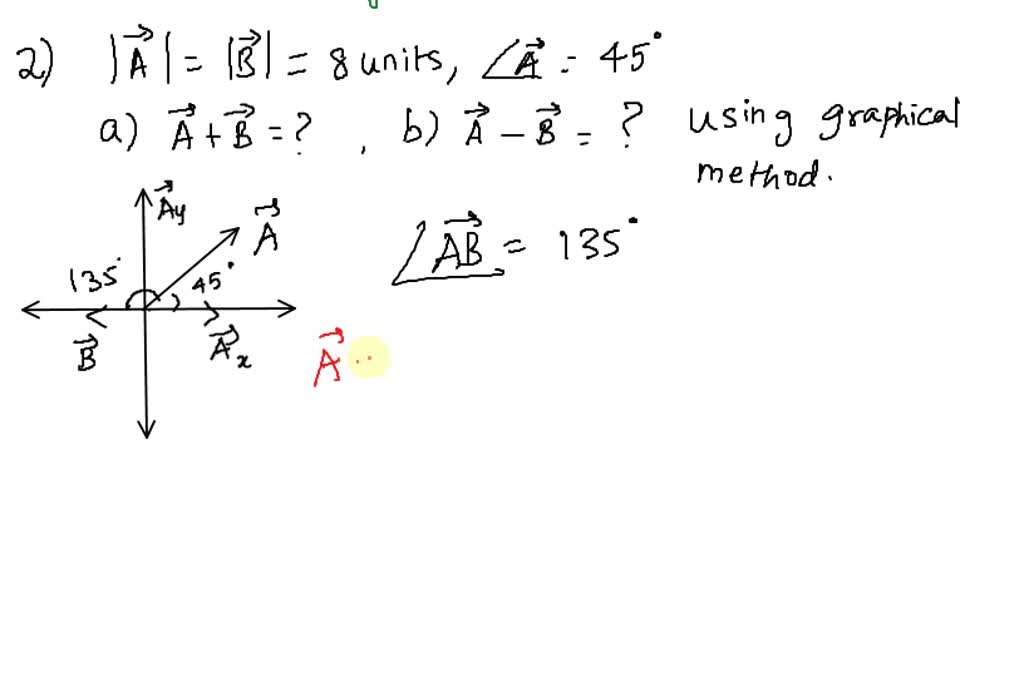 2) |A⃗| = |B⃗| = 8 units, ∠A⃗ = 45°
a) A⃗ + B⃗ = ? , b) A⃗ - B⃗ = ? using graphical
method.
A⃗y
A⃗
∠A⃗B⃗ = 135°
135°
45°
B⃗
A⃗x
A⃗